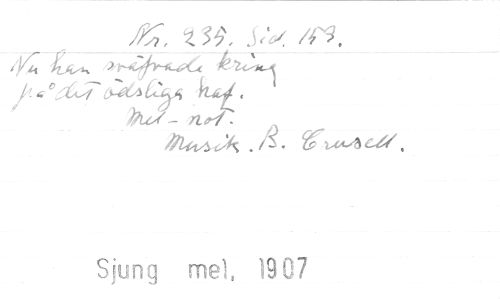 Nr. 235. Sid. 153.
Nu han sväfvade kring
på det ödsliga haf.
Mel-not.
Musik. B. Crusell.
Sjung mel. 1907